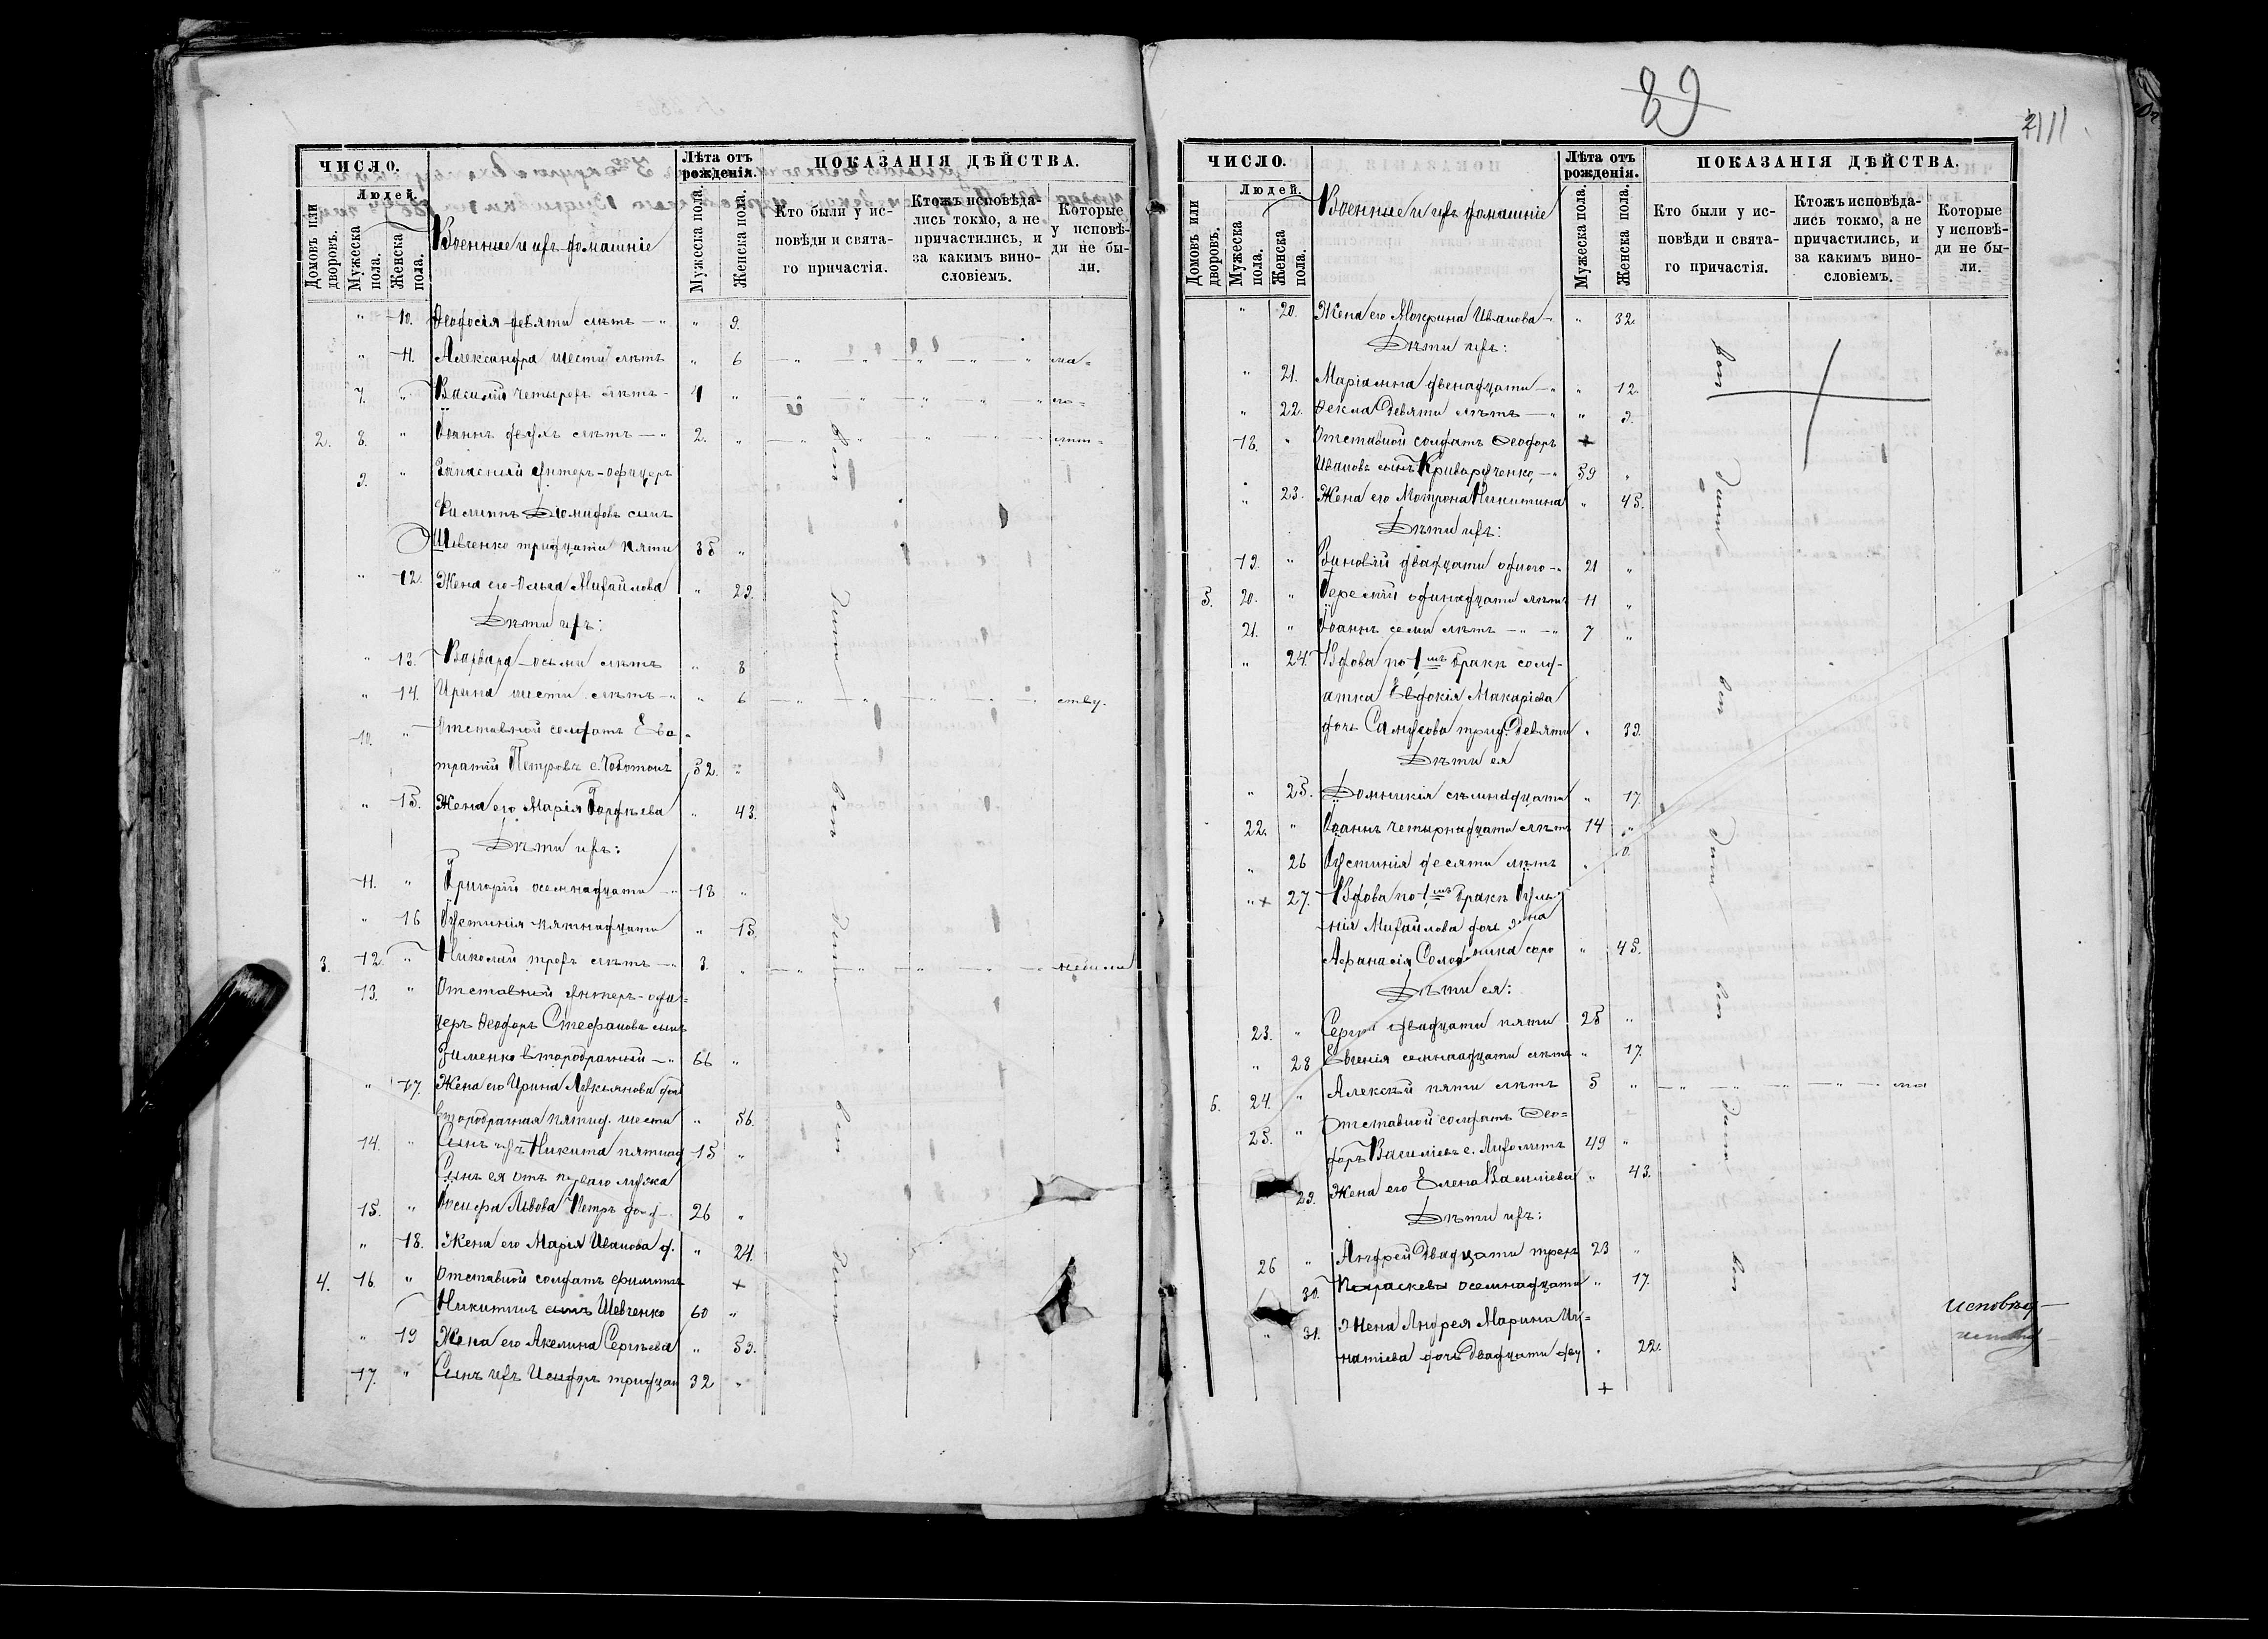 ЧИСЛО.
Людей.
Домовъ или дворовъ.
Мужеска пола.
Женска пола.
Военные и ихъ домашніе
Лѣта отъ рожденія.
Мужеска пола.
Женска пола.
ПОКАЗАНІЯ ДѢЙСТВА.
Кто были у исповѣди и святаго причастія.
Ктожъ исповѣдались токмо, а не причастились, и за какимъ винословіемъ.
Которые у исповѣди не были.
" 10. Ѳеодосія девяти лѣтъ — " " 9.
" 11. Александра шести лѣтъ " 6 — " — " — " — " — " ма=
7. " Василій четырехъ лѣтъ - 4 " — " — " — " — " ло=
2. 8. " Іоаннъ двухъ лѣтъ — " 2. " — " — " — " — " лѣт=
9. " Запасный унтеръ-офицеръ
Филиппъ Діомидовъ сынъ
Шевченко тридцати пяти 35 "
" 12. Жена его Ольга Михайлова " 29.
Дѣти ихъ:
" 13. Варвара осьми лѣтъ " 8
" 14. Ирина шести лѣтъ — " " 6 — " — " — " — " — ству.
10. " Отставной солдатъ Ев-
стратій Петровъ с. Чоботокъ 52. "
" 15. Жена его Марія Гордѣева " 43.
Дѣти ихъ:
11. " Григорій осемнадцати — " 18 "
" 16 Іустинія пятнадцати " 15.
3. 12. " Николай трехъ лѣтъ — " 3. " — " — " — " — "
13. " Отставной унтеръ-офи=
церъ Ѳеодоръ Стефановъ сынъ
Зименко второбрачный — " 66 "
" 17. Жена его Ирина Лукьянова доч
второбрачная пятид. шести " 56.
14. " Сынъ ихъ Никита пятнад 15 "
Сынъ ея отъ перваго мужа
15. " Іосифа Львова Петръ двад 26 "
" 18. Жена его Марія Иванова д. " 24.
4. 16. " Отставной солдатъ Филиппъ +
Никитинъ сынъ Шевченко 60 "
" 19 Жена его Акелина Сергѣева " 59.
17. " Сынъ ихъ Исидоръ тридцат 32 "
89
ЧИСЛО.
Людей.
Домовъ или дворовъ.
Мужеска пола.
Женска пола.
Военные и ихъ домашніе
Лѣта отъ рожденія.
Мужеска пола.
Женска пола.
ПОКАЗАНІЯ ДѢЙСТВА.
Кто были у исповѣди и святаго причастія.
Ктожъ исповѣдались токмо, а не причастились, и за какимъ винословіемъ.
Которые у исповѣди не были.
" 20. Жена его Мокрина Иванова - " 32.
Дѣти ихъ:
" 21. Маріанна двенадцати — " " 12.
" 22. Ѳекла девяти лѣтъ — " " 9.
18. " Отставной солдатъ Ѳеодоръ +
Ивановъ сынъ Криворученко — " 59 "
" 23. Жена его Мотрона Никитина " 45.
Дѣти ихъ:
19. " Зиновій двадцати одного — " 21 "
5. 20. " Іеремій одинадцати лѣтъ 11 "
21. " Іоаннъ семи лѣтъ — " — " 7 "
" 24. Вдова по 1мъ бракѣ солд-
атка Евдокія Макаріева
дочь трид. девяти " 39.
Дѣти ея
" 25. Домникія семнадцати " 17.
22. " Іоаннъ четырнадцати лѣтъ 14 "
" 26 Іустинія десяти лѣтъ " 10.
" + 27. Вдова по 1мъ бракѣ Іуль-
нія Михайлова дочь жена
Аѳанасія соро " 45.
Дѣти ея:
23. " Сергій двадцати пяти 25 "
" 28 Евгенія семнадцати лѣтъ " 17.
6. 24. " Алексѣй пяти лѣтъ 5 " — " — " — " — " — мал
25. " Отставной солдатъ Ѳео=
доръ Василіевъ с. 49 "
29. Жена его Елена Василіева " 43.
Дѣти ихъ:
26 " Андрей двадцати трехъ 23 "
30. Параскева осемнадцати " 17.
" 31. Жена Андрея Марина Иг=
натіева дочь двадцати дву " 22.
+
исповѣд-